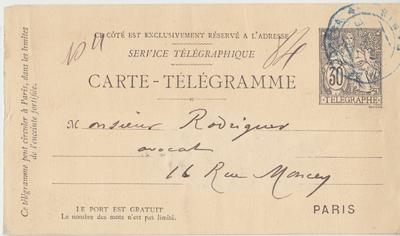 CE CÔTÉ EST EXCLUSIVEMENT RÉSERVÉ A L'ADRESSE
SERVICE TÉLÉGRAPHIQUE
CARTE-TÉLÉGRAMME
30
TÉLÉGRAPHE
Monsieur Rodrigues
avocat
16 Rue Moncey
LE PORT EST GRATUIT
Le nombre des mots n'est pas limité.
PARIS
Ce télégramme peut circuler à Paris, dans les limites
de l'enceinte fortifiée.